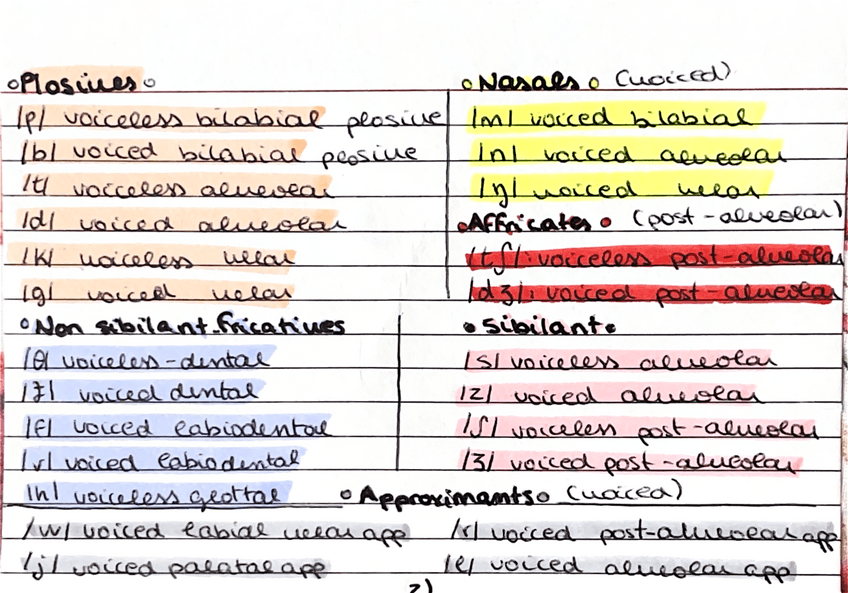 Plosives
/p/ voiceless bilabial plosive
/b/ voiced bilabial plosive
/t/ voiceless alveolar
/d/ voiced alveolar
/k/ voiceless velar
/g/ voiced velar
Nasals (voiced)
/m/ voiced bilabial
/n/ voiced alveolar
/ŋ/ voiced velar
Affricates (post-alveolar)
/tʃ/: voiceless post-alveolar
/dʒ/: voiced post-alveolar
Non sibilant fricatives
/θ/ voiceless-dental
/ð/ voiced dental
/f/ voiced labiodental
/v/ voiced labiodental
/h/ voiceless glottal
Sibilant
/s/ voiceless alveolar
/z/ voiced alveolar
/ʃ/ voiceless post-alveolar
/ʒ/ voiced post-alveolar
Approximants (voiced)
/w/ voiced labial velar app
/j/ voiced palatal app
/r/ voiced post-alveolar app
/l/ voiced alveolar app